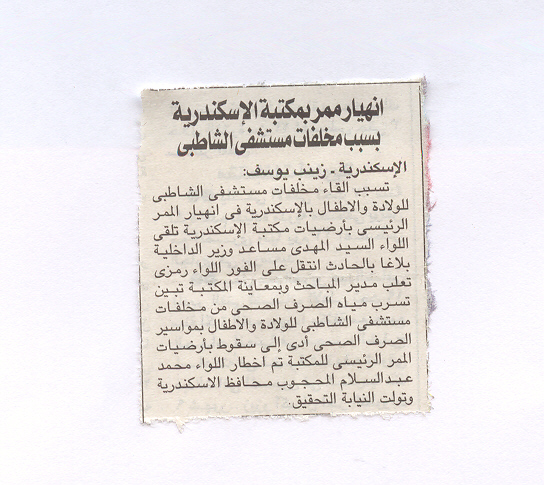 انهيار ممر بمكتبة الإسكندرية
بسبب مخلفات مستشفى الشاطبى
الإسكندرية ـ زينب يوسف:
تسبب القاء مخلفات مستشفى الشاطبى
للولادة والاطفال بالإسكندرية فى انهيار الممر
الرئيسى بأرضيات مكتبة الإسكندرية تلقى
اللواء السيد المهدى مساعد وزير الداخلية
بلاغا بالحادث انتقل على الفور اللواء رمزى
تعلب مدير المباحث وبمعاينة المكتبة تبين
تسرب مياه الصرف الصحى من مخلفات
مستشفى الشاطبى للولادة والاطفال بمواسير
الصرف الصحى أدى إلى سقوط بأرضيات
الممر الرئيسى للمكتبة تم اخطار اللواء محمد
عبدالسلام المحجوب محافظ الاسكندرية
وتولت النيابة التحقيق.